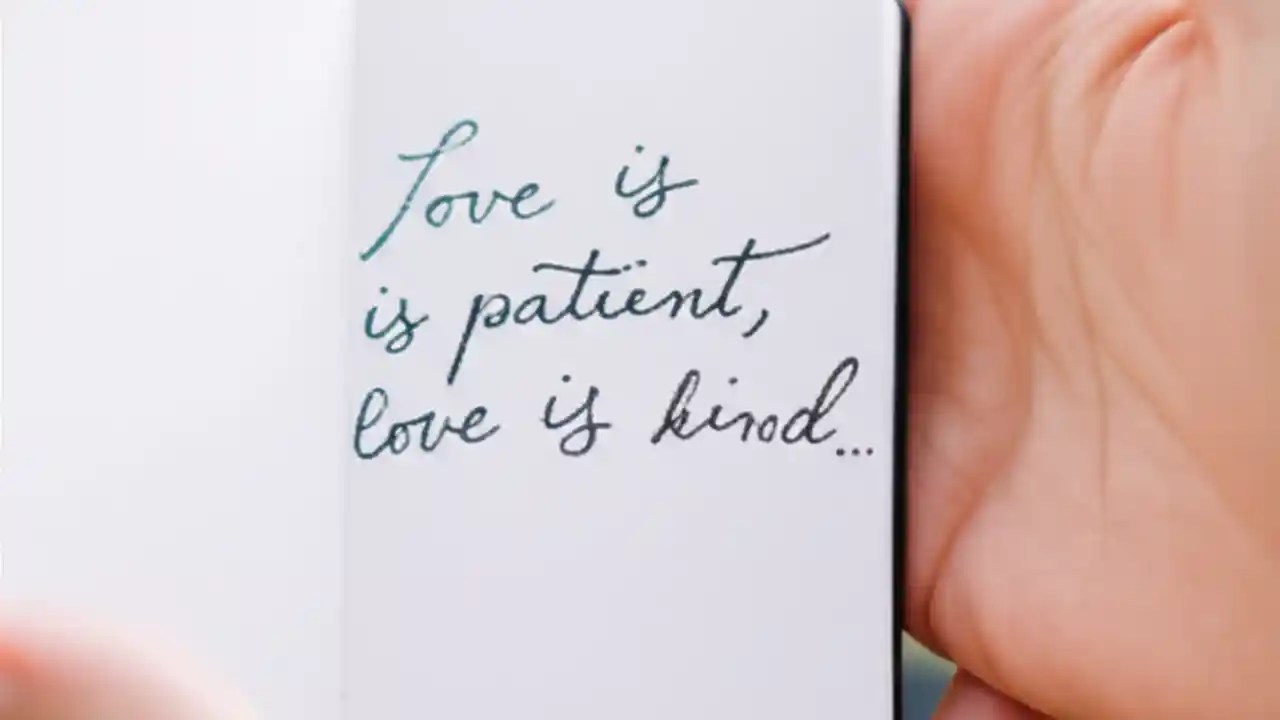 Love is
is patient,
love is kind...